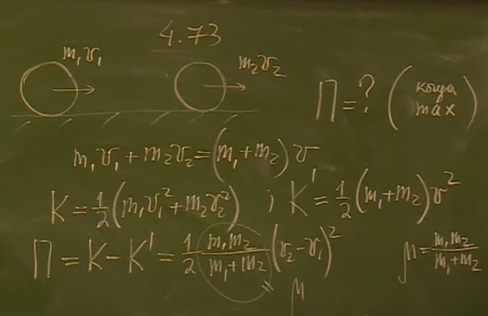 4.73
m₁v₁
m₂v₂
П = ? (когда max)
m₁v₁ + m₂v₂ = (m₁+m₂) v
K = 1/2 (m₁v₁² + m₂v₂²) ; K' = 1/2 (m₁+m₂) v²
П = K − K' = 1/2 m₁m₂/(m₁+m₂) (v₂ − v₁)²
μ = m₁m₂/(m₁+m₂)
μ